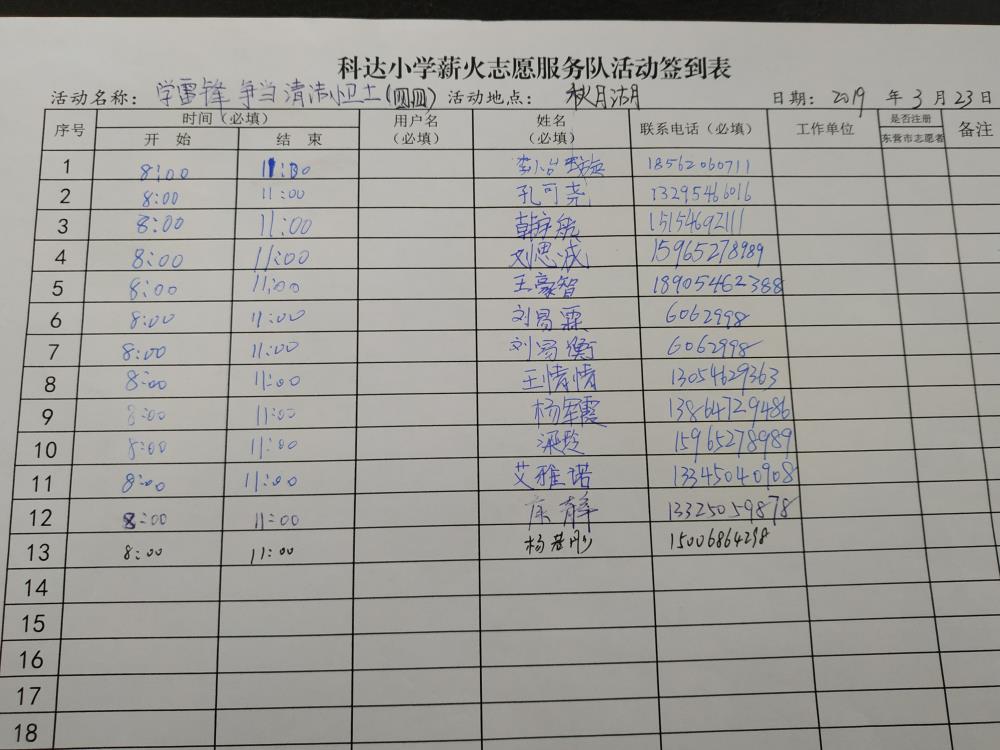 科达小学薪火志愿服务队活动签到表
活动名称: 学雷锋 争当清洁小卫士(四四) 活动地点: 秋月湖 日期: 2019 年 3 月 23 日
序号 时间(必填) 用户名(必填) 姓名(必填) 联系电话(必填) 工作单位 是否注册东营市志愿者 备注
开 始 结 束
1 8:00 11:00 18562060711
2 8:00 11:00 孔可尧 13295466016
3 8:00 11:00 韩宇航 15154692111
4 8:00 11:00 刘思成 15965278989
5 8:00 11:00 王豪智 18905462388
6 8:00 11:00 刘易霖 6062998
7 8:00 11:00 刘易衡 6062998
8 8:00 11:00 王情情 13054629363
9 8:00 11:00 杨军霞 13864729486
10 8:00 11:00 梁玲 15965278989
11 8:00 11:00 艾雅诺 13345040908
12 8:00 11:00 静 13325059878
13 8:00 11:00 杨 刚 15006864298
14
15
16
17
18